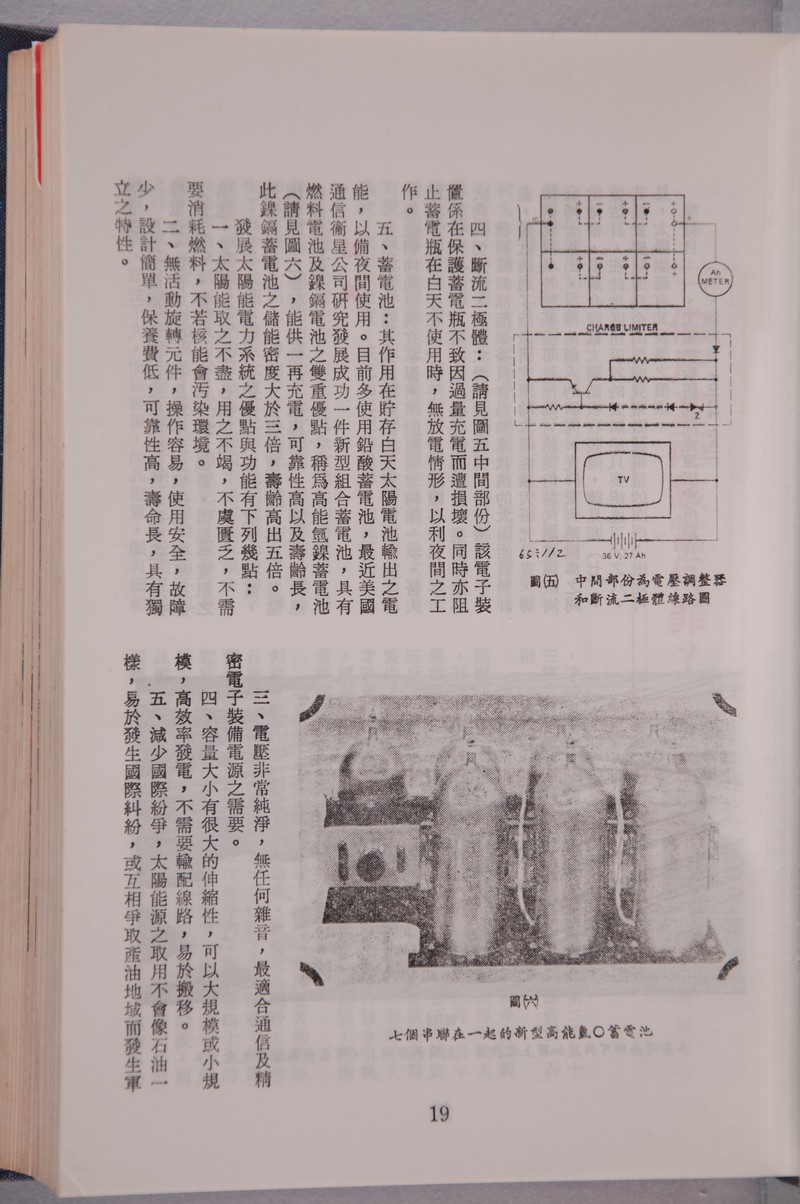 Ah
METER
CHARGE LIMITER
Z
TV
36 V, 27 Ah
圖(五) 中間部份為電壓調整器
和斷流二極體線路圖
四、斷流二極體：（請見圖五中間部份）該電子裝
置係在保護蓄電瓶不致因過量充電而遭損壞。同時亦阻
止蓄電瓶在白天不使用時，無放電情形，以利夜間之工
作。
五、蓄電池：其作用在貯存白天太陽電池輸出之電
能，以備夜間使用。目前多使用鉛酸蓄電池，最近美國
通信衞星公司研究發展成功一件新型組合蓄電池，具有
燃料電池及鎳鎘電池之雙重優點，稱爲高能氫鎳蓄電池
（請見圖六），能供一再充電，可靠性高以及壽齡長，
此鎳鎘蓄電池之儲能密度大於三倍，壽齡高出五倍。
發展太陽能電力系統之優點與功能有下列幾點：
一、太陽能取之不盡，用之不竭，不虞匱乏，不需
要消耗燃料，不若核能會汚染環境。
二、無活動旋轉元件，操作容易，使用安全，故障
少，設計簡單，保養費低，可靠性高，壽命長，具有獨
立之特性。
圖(六)
七個串聯在一起的新型高能氫〇蓄電池
三、電壓非常純淨，無任何雜音，最適合通信及精
密電子裝備電源之需要。
四、容量大小有很大的伸縮性，可以大規模或小規
模，高效率發電，不需要輸配線路，易於搬移。
五、減少國際紛爭，太陽能源之取用不會像石油一
樣，易於發生國際糾紛，或互相爭取產油地域而發生軍
19